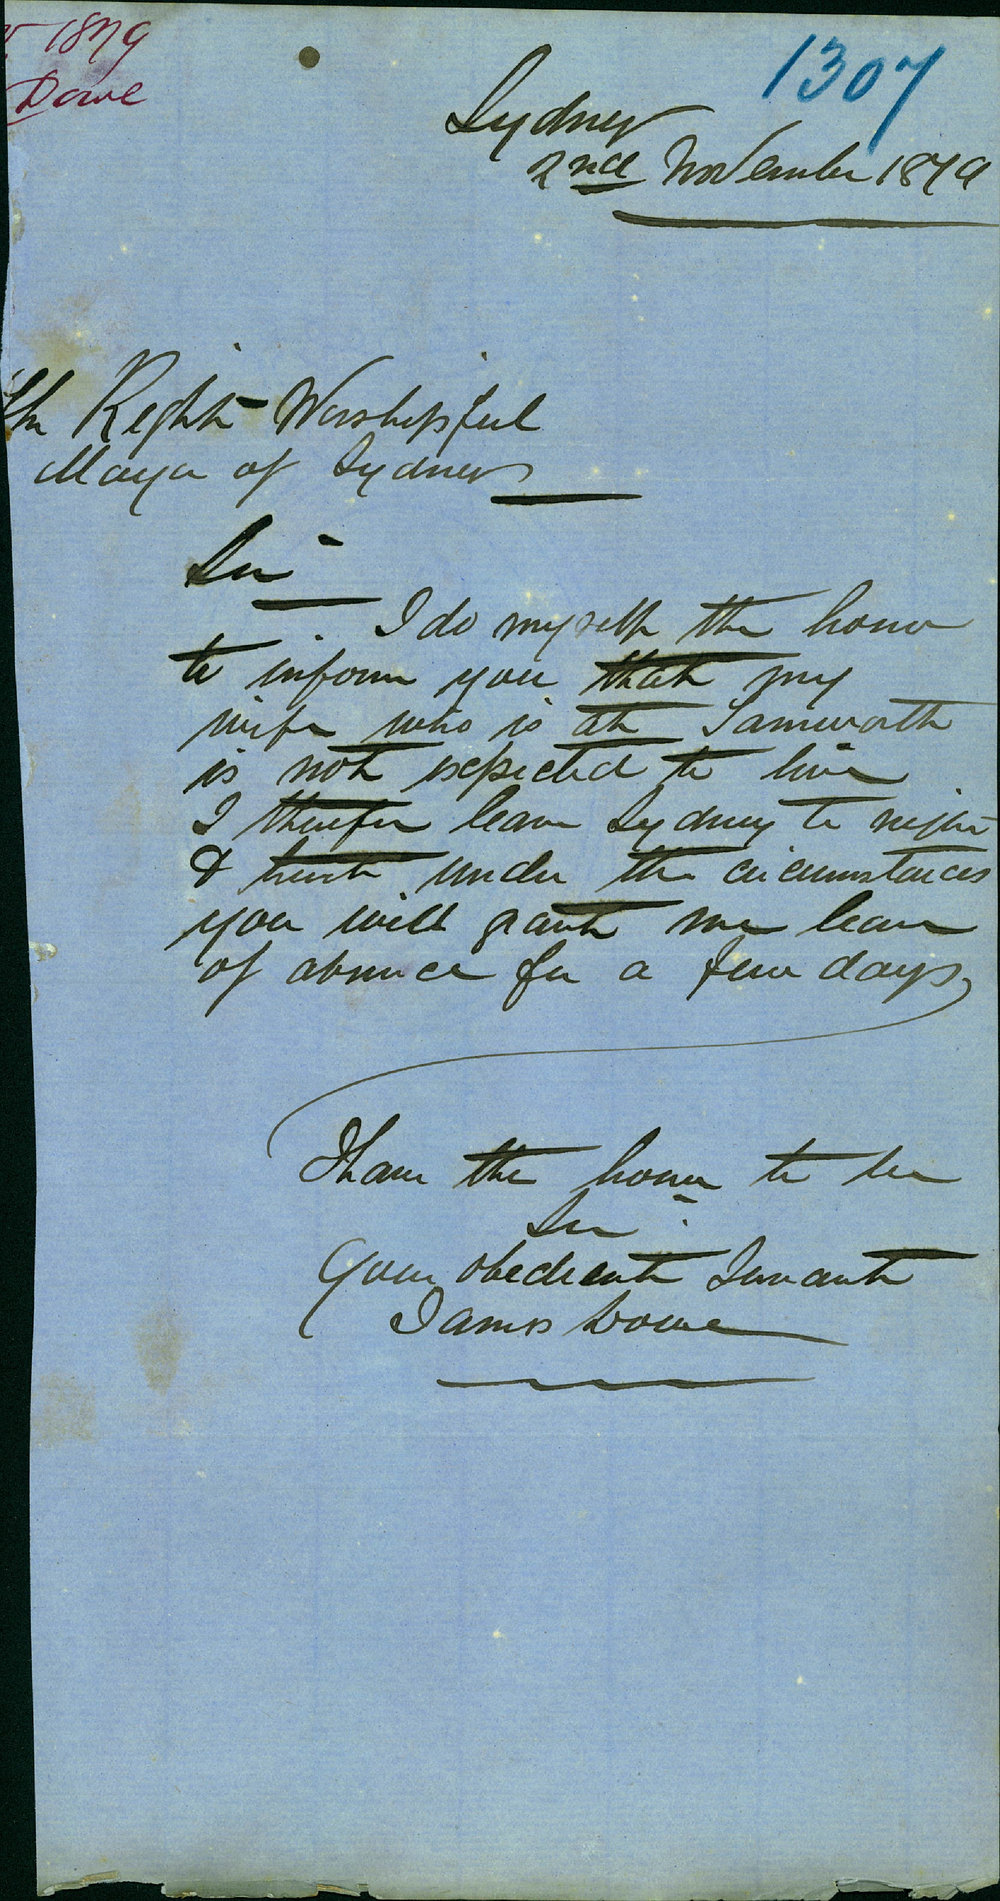 1879
Dowe
1307
Sydney
2nd November 1879
The Right Worshipful
Mayor of Sydney
Sir
I do myself the honor
to inform you that my
wife who is at Tamworth
is not expected to live
I therefore leave Sydney to night
& trust under the circumstances
you will grant me leave
of absence for a few days,
I have the honor to be
Sir
Your obedient Servant
James Dowe